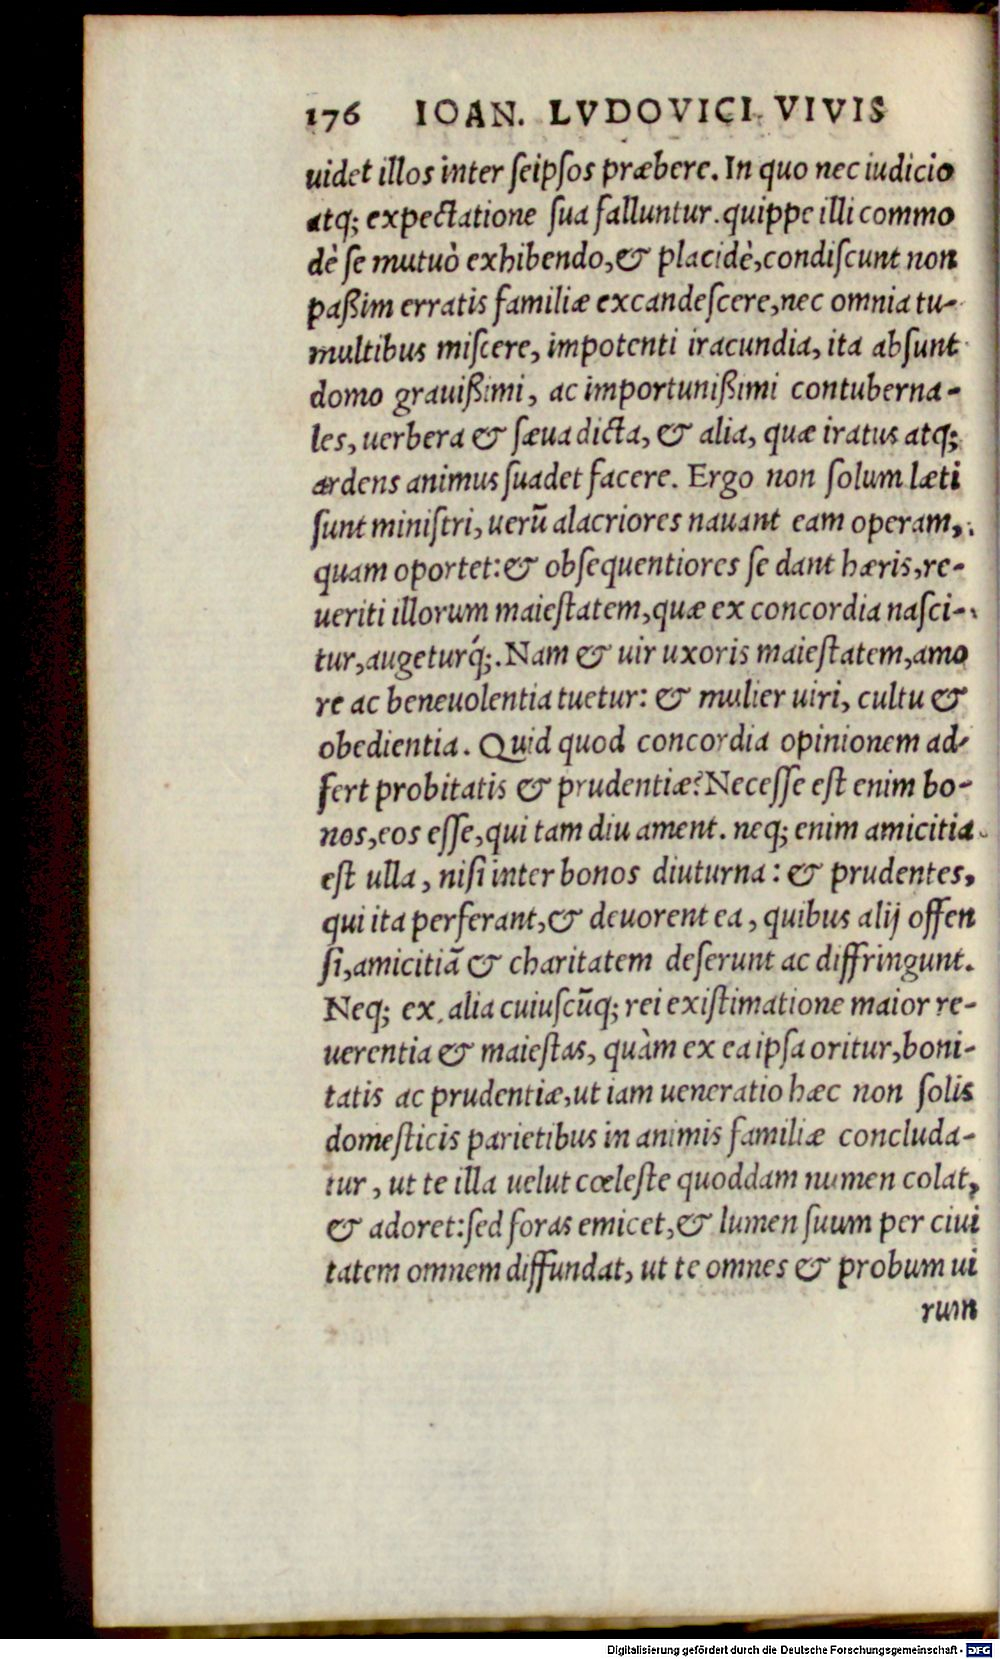 176 IOAN. LVDOVICI VIVIS
uidet illos inter ſeipſos præbere. In quo nec iudicio
atq; expectatione ſua falluntur. quippe illi commo
dè ſe mutuò exhibendo, & placidè, condiſcunt non
paßim erratis familiæ excandeſcere, nec omnia tu-
multibus miſcere, impotenti iracundia, ita abſunt
domo grauißimi, ac importunißimi contuberna-
les, uerbera & ſæua dicta, & alia, quæ iratus atq;
ardens animus ſuadet facere. Ergo non ſolum læti
ſunt miniſtri, uerũ alacriores nauant eam operam,
quam oportet: & obſequentiores ſe dant hæris, re-
ueriti illorum maieſtatem, quæ ex concordia naſci-
tur, augeturq́;. Nam & uir uxoris maieſtatem, amo
re ac beneuolentia tuetur: & mulier uiri, cultu &
obedientia. Quid quod concordia opinionem ad-
fert probitatis & prudentiæ? Neceſſe eſt enim bo-
nos, eos eſſe, qui tam diu ament. neq; enim amicitia
eſt ulla, niſi inter bonos diuturna: & prudentes,
qui ita perferant, & deuorent ea, quibus alij offen
ſi, amicitiã & charitatem deſerunt ac diffringunt.
Neq; ex alia cuiuſcũq; rei exiſtimatione maior re-
uerentia & maieſtas, quàm ex ea ipſa oritur, boni-
tatis ac prudentiæ, ut iam ueneratio hæc non ſolis
domeſticis parietibus in animis familiæ concluda-
tur, ut te illa uelut cœleſte quoddam numen colat,
& adoret: ſed foras emicet, & lumen ſuum per ciui
tatem omnem diffundat, ut te omnes & probum ui
rum
Digitalisierung gefördert durch die Deutsche Forschungsgemeinschaft - DFG